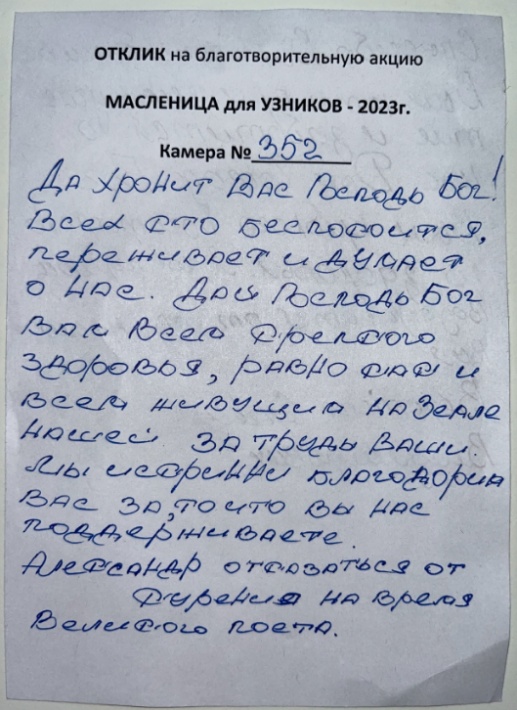 ОТКЛИК на благотворительную акцию
МАСЛЕНИЦА для УЗНИКОВ - 2023г.
Камера № 352
Да хронит Вас Господь Бог!
Всех кто беспокоится,
переживает и думает
о нас. Дай Господь Бог
Вам всем крепкого
здоровья, равно как и
всем живущим на Земле
нашей за труды Ваши.
Мы искринни благодорим
Вас за, то что вы нас
поддерживаете.
Александр отказаться от
курения на время
Великого поста.